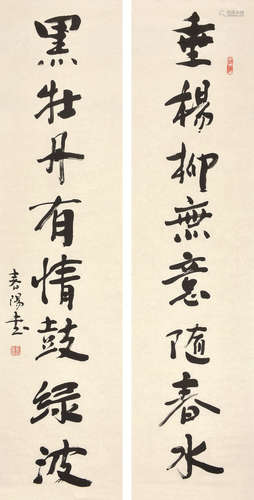 垂楊柳無意随春水
黑牡丹有情鼓绿波
春陽書